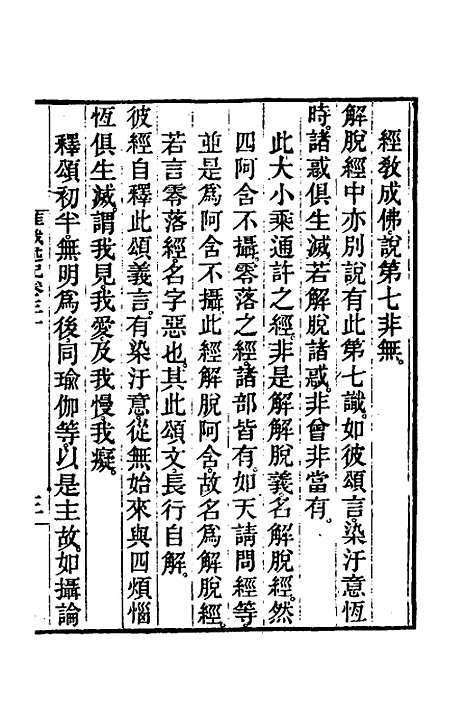 經敎成佛說第七非無。
解脫經中亦別說有此第七識。如彼頌言。染汙意恆
時。諸惑俱生滅。若解脫諸惑。非曾非當有。
此大小乘通許之經。非是解解脫義。名解脫經。然
四阿含不攝。零落之經。諸部皆有。如天請問經等。
並是爲阿含不攝。此經解脫阿含。故名爲解脫經。
若言零落經。名字惡也。其此頌文。長行自解。
彼經自釋此頌義言。有染汙意。從無始來。與四煩惱
恆俱生滅。謂我見。我愛及我慢。我癡。
釋頌初半。無明爲後。同瑜伽等。以是主故。如攝論